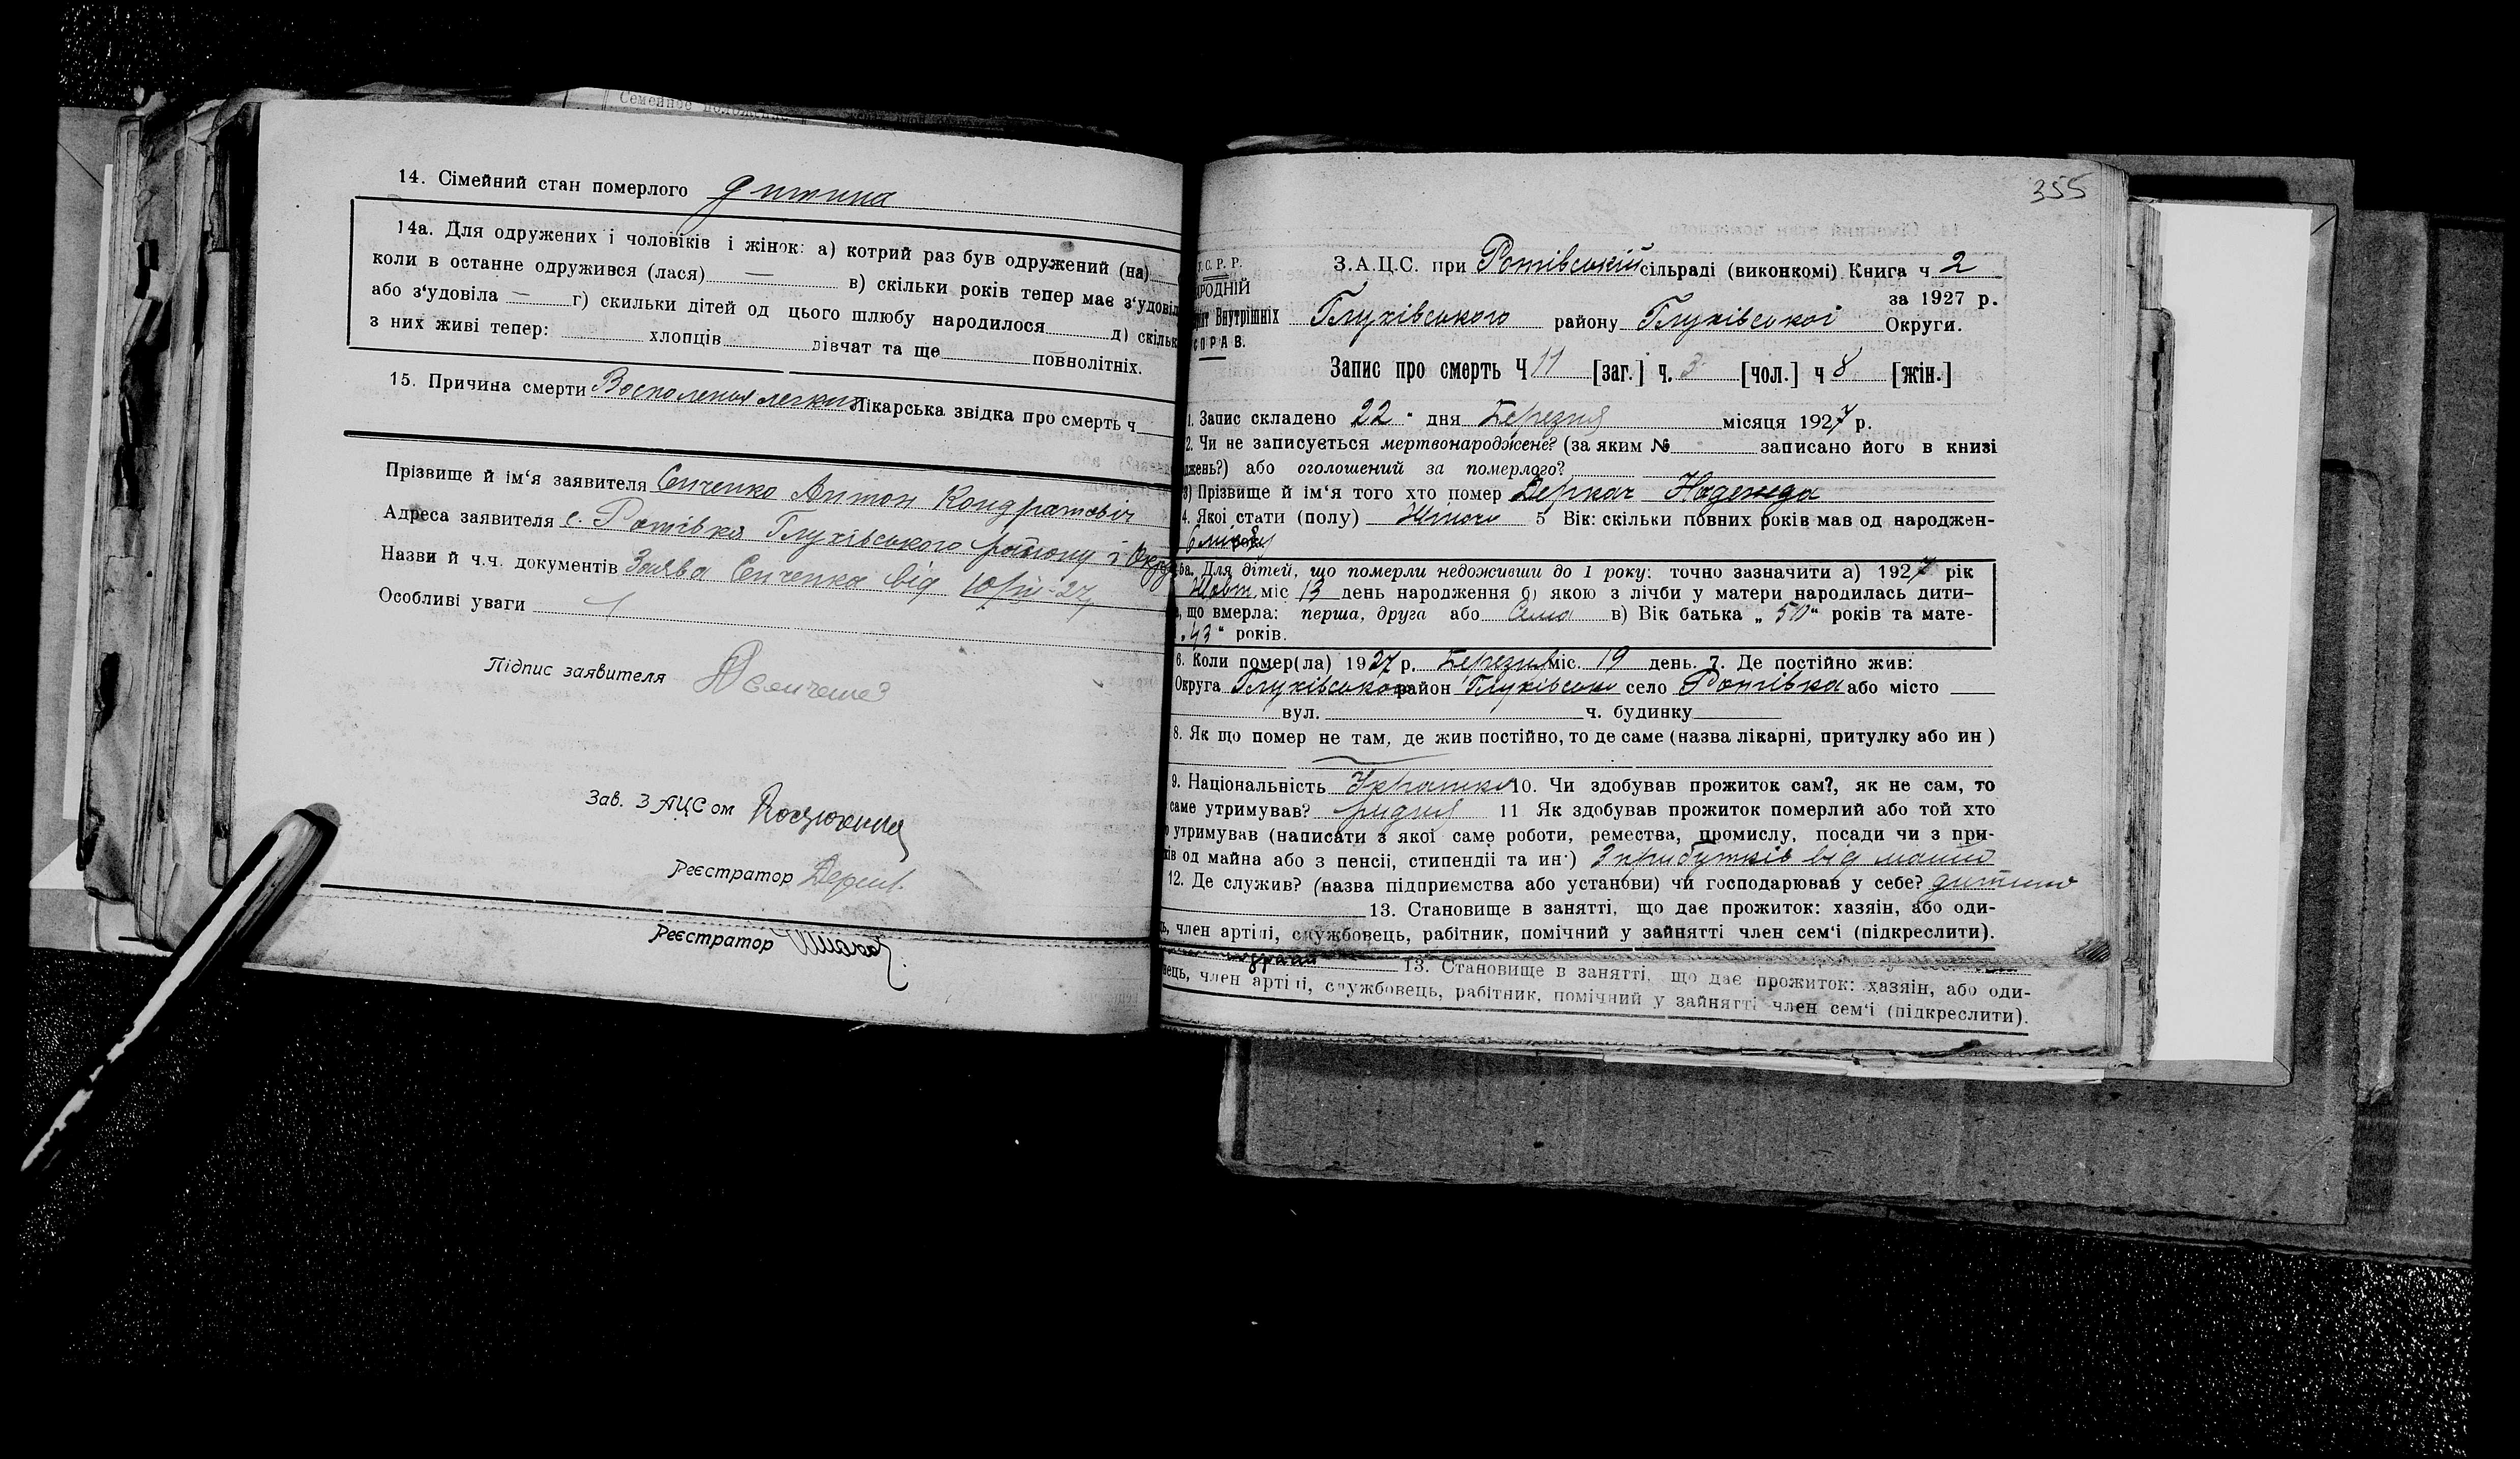 Семейное положение
14. Сімейний стан померлого дитина
14а. Для одружених і чоловіків і жінок: а) котрий раз був одружений (на)
коли в останне одружився (лася) — в) скільки років тепер має з'удовіл
або з'удовіла — г) скильки дітей од цього шлюбу народилося д) скільк
з них живі тепер: хлопців дівчат та ще повнолітніх.
15. Причина смерти Восполения легких Лікарська звідка про смерть ч
Прізвище й ім'я заявителя Сенченко Антон Кондратовіч
Адреса заявителя с. Ротівка Глухівського району і Окр
Назви й ч.ч. документів Заява Сенченка від 10/III-27
Особливі уваги
Підпис заявителя
Зав. ЗАЦСом
Реєстратор
Реєстратор
355
.С.Р.Р.
АРОДНІЙ
Внутрішніх
СПРАВ.
З.А.Ц.С. при Ротівській сільраді (виконкомі). Книга ч 2
за 1927 р.
Глухівського району Глухівської Округи.
Запис про смерть Ч 11 [заг.] ч. 3 [чол.] ч 8 [жін.]
1. Запис складено 22 " дня Березня місяця 1927 р.
2. Чи не записується мертвонароджене? (за яким № записано його в книзі
джень?) або оголошений за померлого?
3) Прізвище й ім'я того хто помер Деркач Надежда
4. Якої стати (полу) Жіноч 5 Вік: скільки повних років мав од народжен-
6
5а. Для дітей, що померли недоживши до 1 року: точно зазначити а) 1927 рік
Жовт міс 13 день народження б) якою з лічби у матери народилась дити-
, що вмерла: перша, друга або в) Вік батька „ 50 " років та мате-
„ 43 " років.
6. Коли помер(ла) 1927 р. Березня міс. 19 день. 7. Де постійно жив:
Округа Глухівського район Глухівськ село Ротівка або місто
вул. ч. будинку
8. Як що помер не там, де жив постійно, то де саме (назва лікарні, притулку або ин )
9. Національність Українка 10. Чи здобував прожиток сам?, як не сам, то
саме утримував? рідня 11 Як здобував прожиток померлий або той хто
утримував (написати з якої саме роботи, ремества, промислу, посади чи з при-
ків од майна або з пенсії, стипендії та ин·) З прибутків від майна
12. Де служив? (назва підприємства або установи) чи господарював у себе? дитина
13. Становище в занятті, що дає прожиток: хазяїн, або оди-
ь, член артілі, службовець, рабітник, помічний у зайнятті член сем'ї (підкреслити).
13. Становище в занятті, що дає прожиток: хазяїн, або оди-
нець, член артілі, службовець, рабітник, помічний у зайнятті член сем'ї (підкреслити).